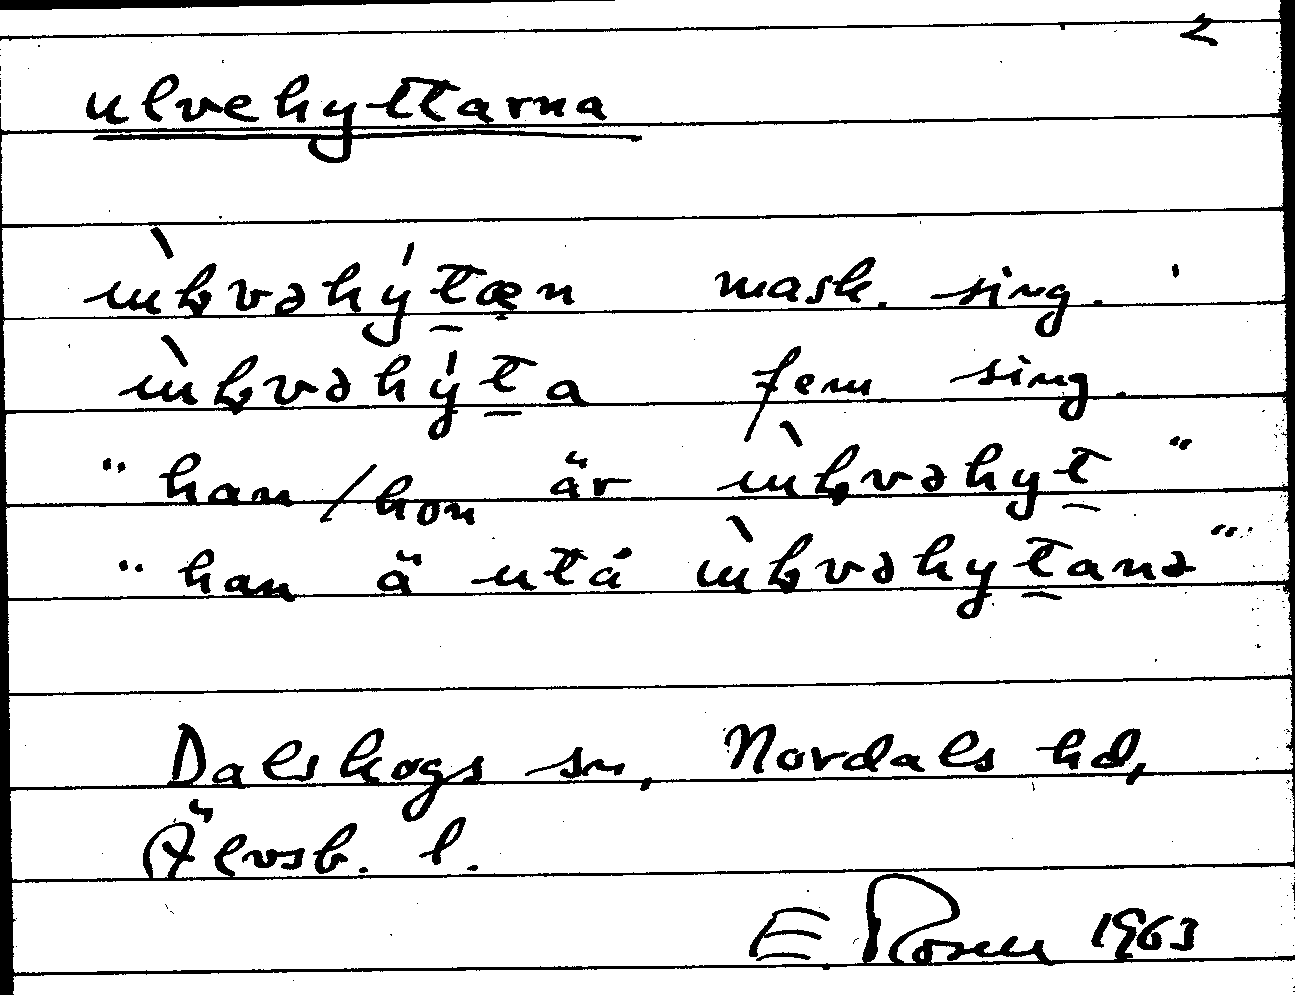 2
ulvehyttarna
ùḷvəhýt̲æn mask. sing.
ùḷvəhýt̲a fem sing.
"han/hon är ùḷvəhyt̲"
"han ä utå ùḷvəhyt̲anə"
Dalskogs sn, Nordals hd,
Älvsb. l.
E. Rosell 1963